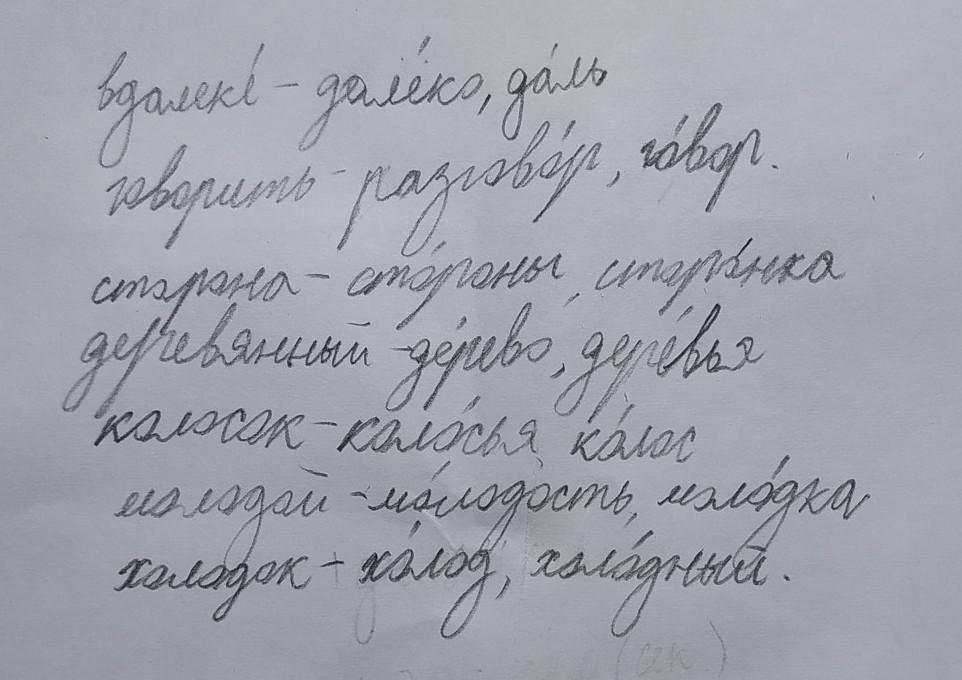 вдалеке́ - дале́ко, да́ль
говорить - разгово́р, го́вор.
сторона - сто́роны, сторо́нка
деревянный - де́рево, дере́вья
колосок - коло́сья, ко́лос
молодой - мо́лодость, моло́дка
холодок - хо́лод, холо́дный.
(сек.)